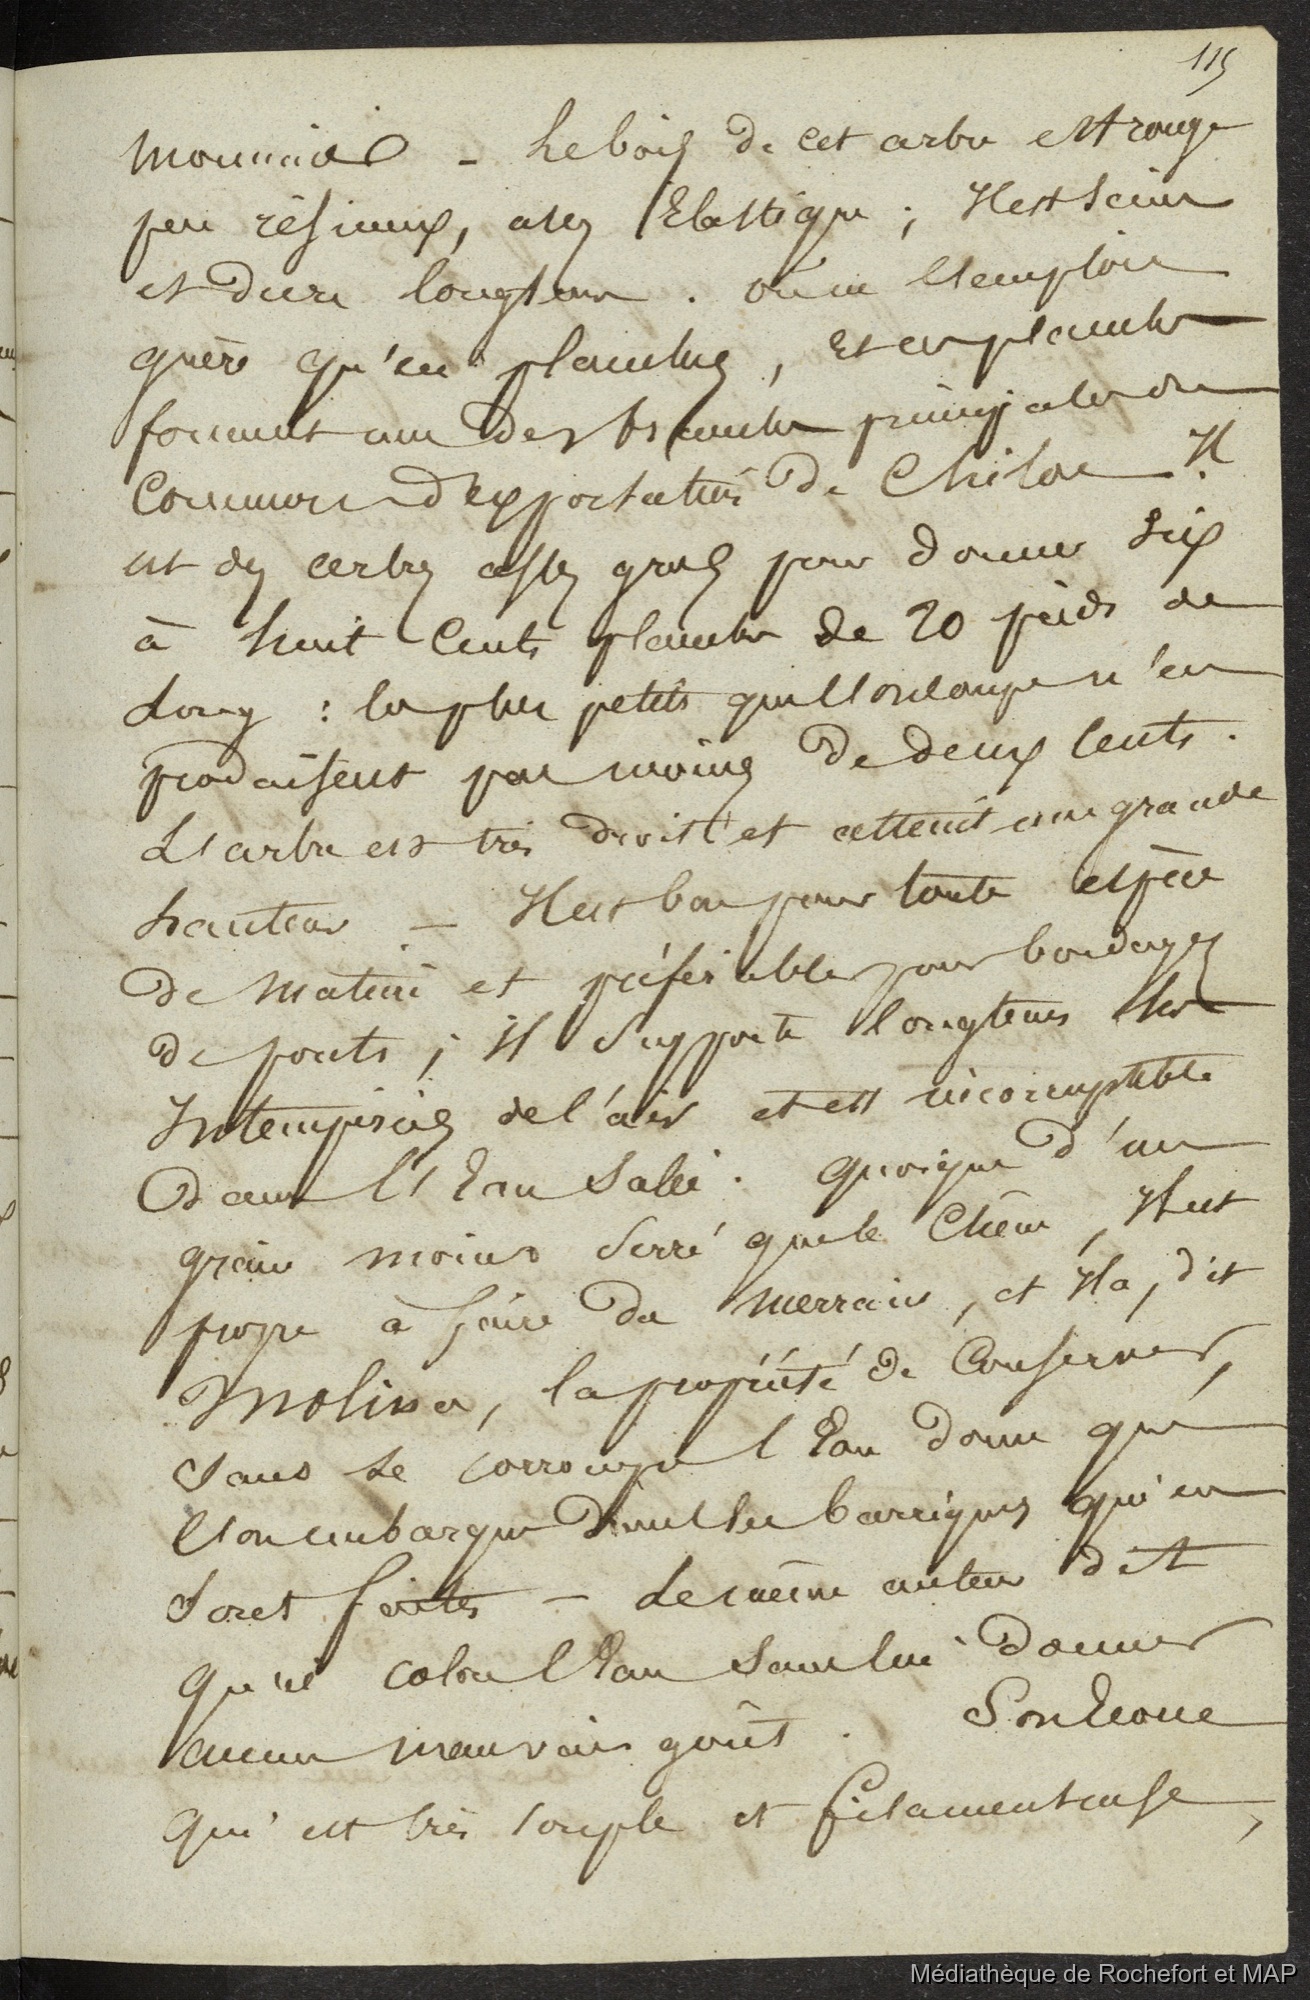 115
- Le bois de cet arbre est rouge
peu résineux, assez Elastique ; Il est sain
et dure longtems . on ne l'emploie
guère qu'en planches, Et ces planches
forment une des branches principales du
Commerce d'exportation de Chiloe Il
est des arbres assez gros pour donner six
à huit Cents planches de 20 pieds de
Long : les plus petits que l'on coupe n'en
produisent pas moins de deux Cents.
L'arbre est très droit et atteint une grande
hauteur - Il est bon pour toute espèce
de mature et préférable pour bordages
de ponts ; il supporte longtems les
Intempéries de l'air et est incorruptible
dans l'Eau salée. quoique d'un
grain moins serré que le Chêne, Il est
propre à faire du merrain, et Il a, dit
Molina, la propriété de Conserver,
sans se corrompre l'Eau douce que
l'on embarque dans les barriques qui en
sont faites - Le même auteur dit
qu'il colore l'Eau sans lui donner
aucun mauvais goût . Son Ecorce
qui est très souple et filamenteuse,
Médiathèque de Rochefort et MAP